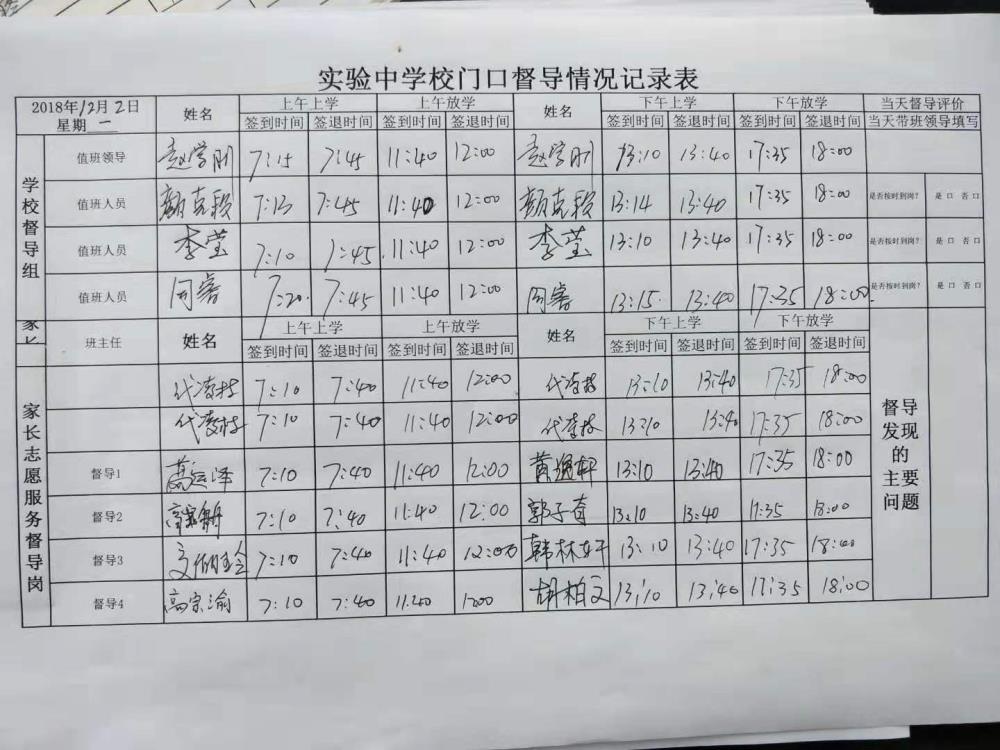 实验中学校门口督导情况记录表
2018年12月2日 姓名 上午上学 上午放学 姓名 下午上学 下午放学 当天督导评价
星期一 签到时间 签退时间 签到时间 签退时间 签到时间 签退时间 签到时间 签退时间 当天带班领导填写
学校督导组
值班领导 赵学刚 7:15 7:45 11:40 12:00 赵学刚 13:10 13:40 17:35 18:00
值班人员 颜克毅 7:13 7:45 11:40 12:00 颜克毅 13:14 13:40 17:35 18:00 是否按时到岗? 是口 否口
值班人员 李莹 7:10 7:45 11:40 12:00 李莹 13:10 13:40 17:35 18:00 是否按时到岗? 是口 否口
值班人员 7:20 7:45 11:40 12:00 13:15 13:40 17:35 18:00 是否按时到岗? 是口 否口
家长
班主任 姓名 上午上学 上午放学 姓名 下午上学 下午放学
签到时间 签退时间 签到时间 签退时间 签到时间 签退时间 签到时间 签退时间
家长志愿服务督导岗
代凌枝 7:10 7:40 11:40 12:00 代凌枝 13:10 13:40 17:35 18:00
代凌枝 7:10 7:40 11:40 12:00 代凌枝 13:10 13:40 17:35 18:00
督导1 7:10 7:40 11:40 12:00 黄逸轩 13:10 13:40 17:35 18:00
督导2 7:10 7:40 11:40 12:00 郭子奇 13:10 13:40 17:35 18:00
督导3 7:10 7:40 11:40 12:00 韩林轩 13:10 13:40 17:35 18:00
督导4 高宗渝 7:10 7:40 11:40 1200 胡柏文 13:10 13:40 17:35 18:00
督导
发现
的
主要
问题